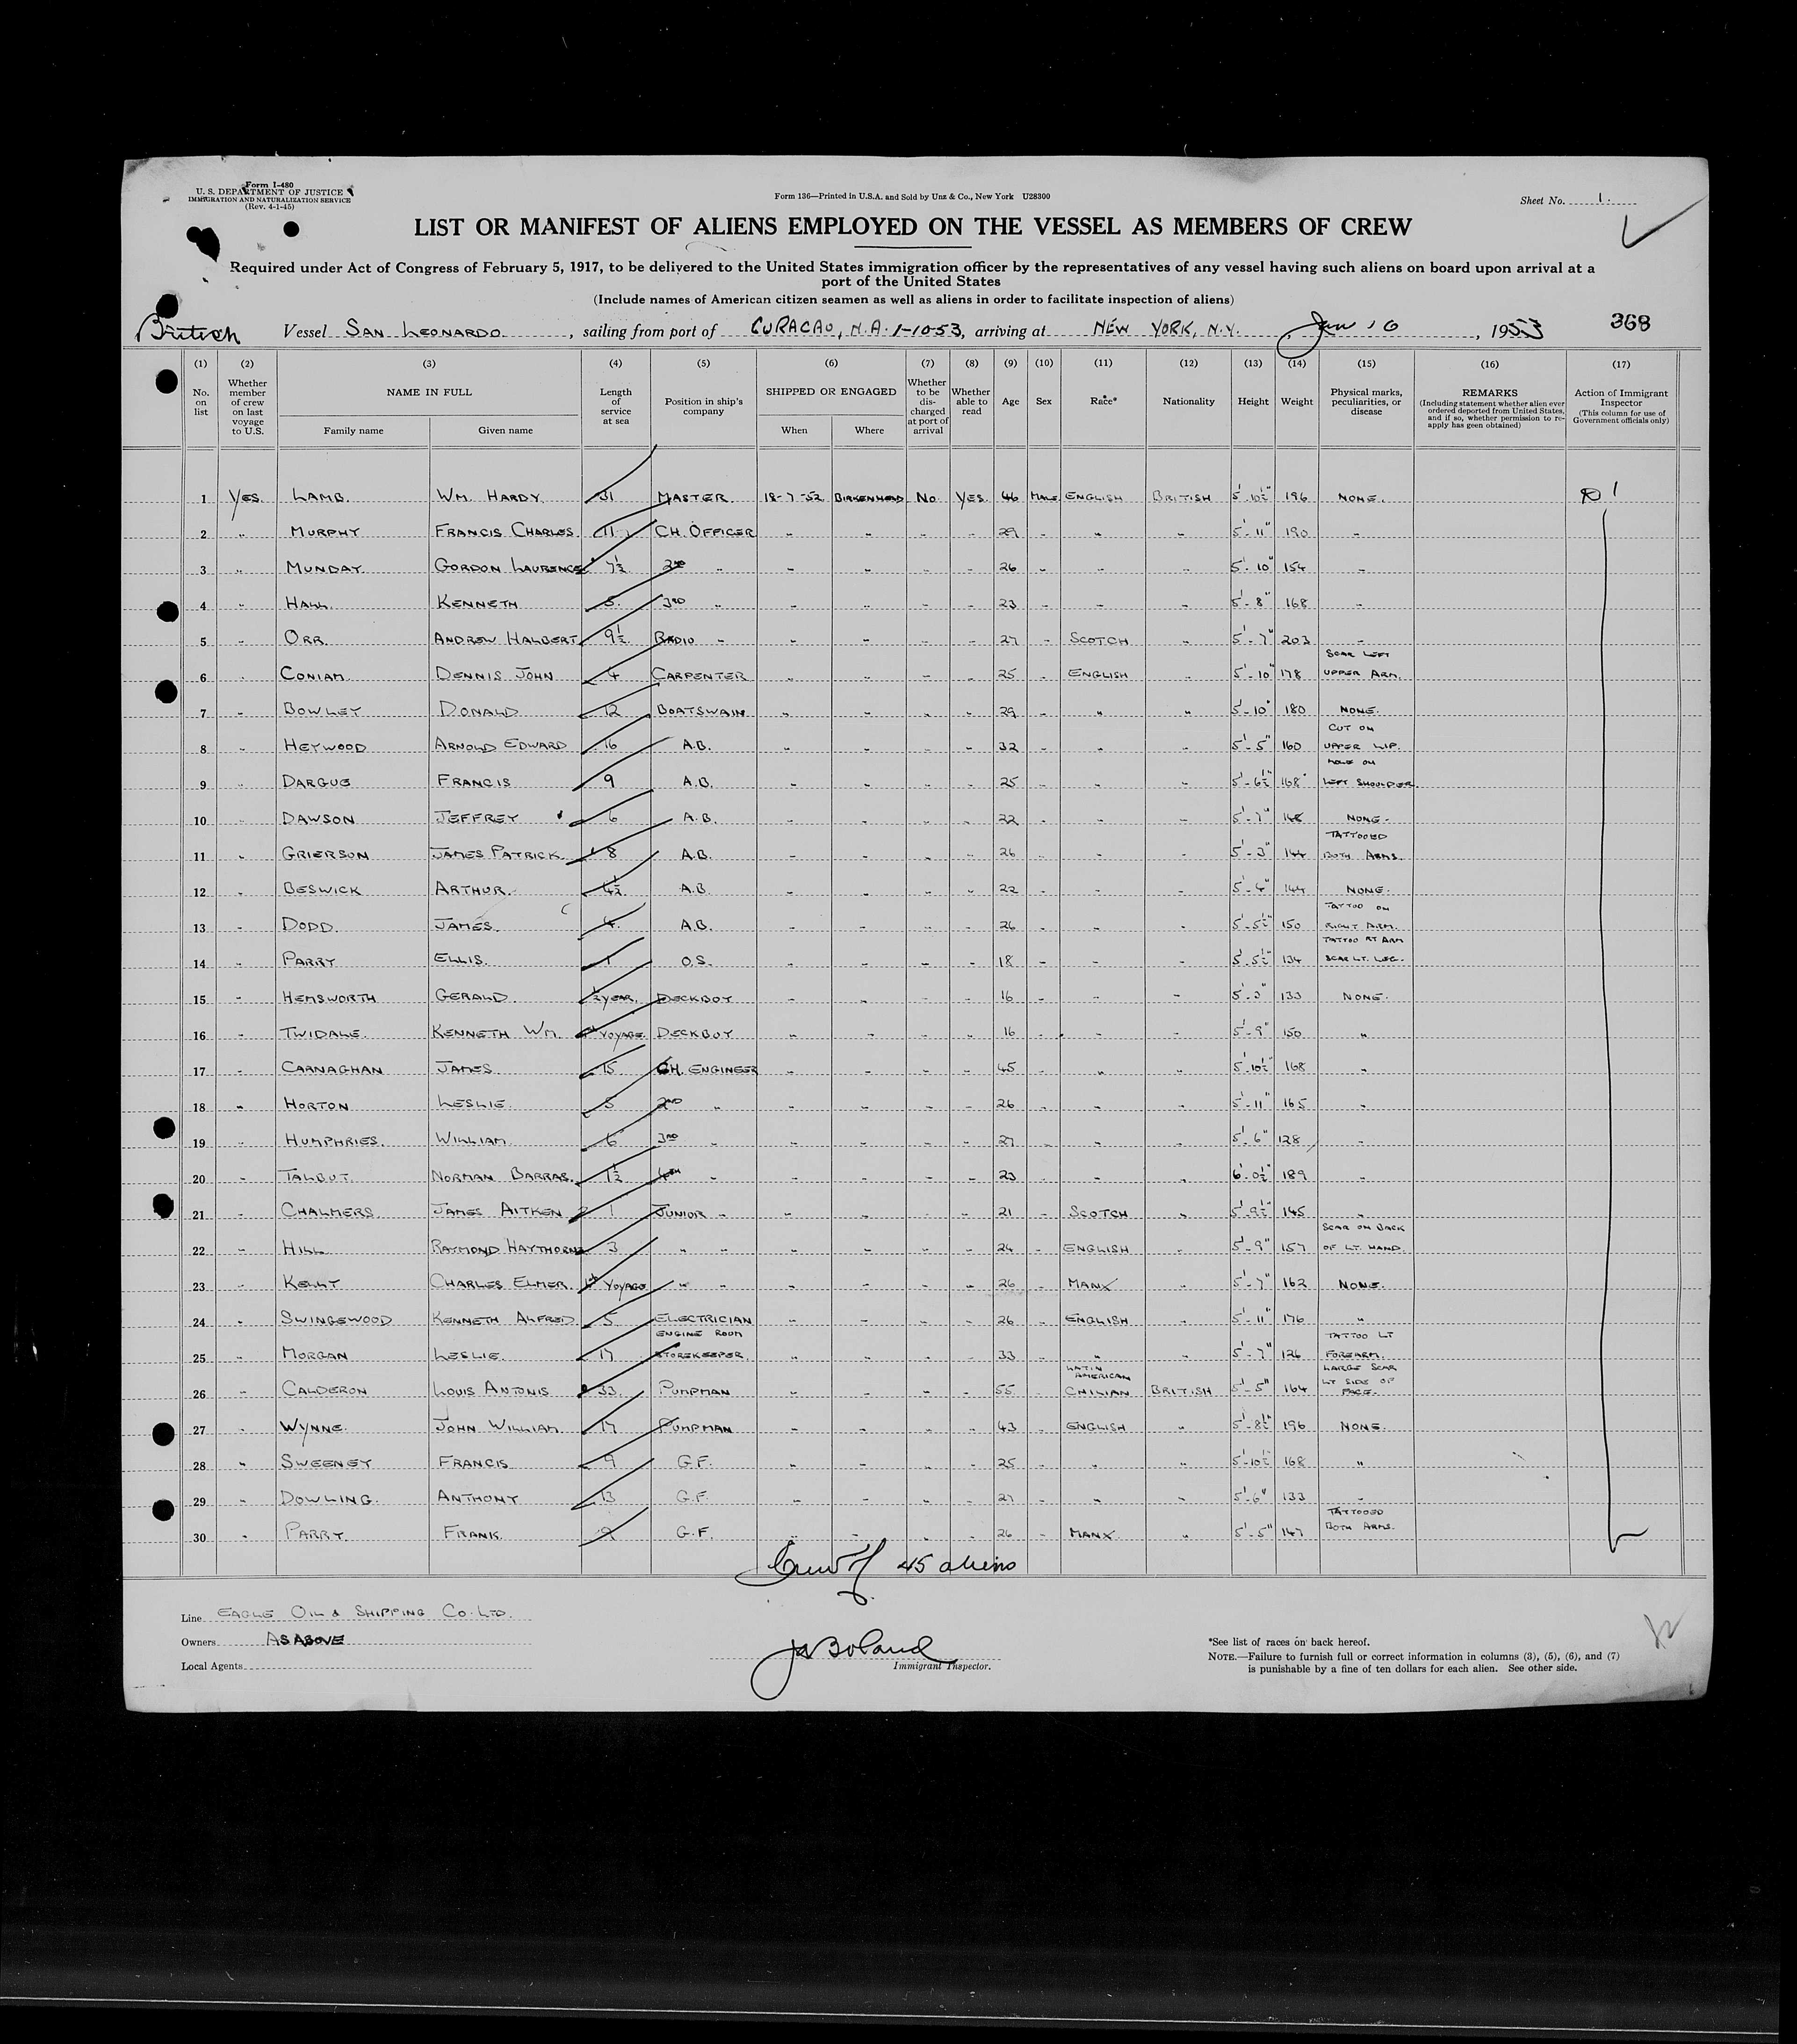 Form I-480
U. S. DEPARTMENT OF JUSTICE
IMMIGRATION AND NATURALIZATION SERVICE
(Rev. 4-1-45)
Form 136—Printed in U.S.A. and Sold by Unz & Co., New York U28300
Sheet No. 1.
LIST OR MANIFEST OF ALIENS EMPLOYED ON THE VESSEL AS MEMBERS OF CREW
Required under Act of Congress of February 5, 1917, to be delivered to the United States immigration officer by the representatives of any vessel having such aliens on board upon arrival at a
port of the United States
(Include names of American citizen seamen as well as aliens in order to facilitate inspection of aliens)
British Vessel SAN LEONARDO, sailing from port of CURACAO, N.A. 1-10-53, arriving at NEW YORK, N.Y., Jan 16, 1953 368
(1) (2) (3) (4) (5) (6) (7) (8) (9) (10) (11) (12) (13) (14) (15) (16) (17)
No. on list Whether member of crew on last voyage to U.S. NAME IN FULL Family name Given name Length of service at sea Position in ship's company SHIPPED OR ENGAGED When Where Whether to be discharged at port of arrival Whether able to read Age Sex Race* Nationality Height Weight Physical marks, peculiarities, or disease REMARKS (Including statement whether alien ever ordered deported from United States, and if so, whether permission to re-apply has geen obtained) Action of Immigrant Inspector (This column for use of Government officials only)
1 YES. LAMB. WM. HARDY. 31 MASTER. 18-7-52 BIRKENHEAD No. YES. 46 MALE ENGLISH BRITISH 5'-10½" 196 NONE.
2 " MURPHY FRANCIS CHARLES. 11 CH. OFFICER " " " " 29 " " " 5'-11" 190 "
3 " MUNDAY. GORDON LAURENCE 7½ 2ND " " " " " 26 " " " 5'-10" 154 "
4 " HALL. KENNETH 5. 3RD " " " " " 23 " " " 5'-8" 168 "
5 " ORR. ANDREW HALBERT 9½ RADIO " " " " " 27 " SCOTCH " 5'-7" 203 "
6 " CONIAM. DENNIS JOHN. 4 CARPENTER " " " " 25 " ENGLISH " 5'-10" 178 SCAR LEFT UPPER ARM.
7 " BOWLEY DONALD 12 BOATSWAIN " " " " 29 " " " 5'-10" 180 NONE.
8 " HEYWOOD ARNOLD EDWARD 16 A.B. " " " " 32 " " " 5'-5" 160 CUT ON UPPER LIP.
9 " DARGUE FRANCIS 9 A.B. " " " " 25 " " " 5'-6½" 168 MOLE ON LEFT SHOULDER.
10 " DAWSON JEFFREY 6 A.B. " " " " 22 " " " 5'-7" 148 NONE.
11 " GRIERSON JAMES PATRICK. 8 A.B. " " " " 26 " " " 5'-3" 144 TATTOOED BOTH ARMS.
12 " BESWICK ARTHUR. 4½. A.B. " " " " 22 " " " 5'-4" 144 NONE.
13 " DODD. JAMES. 4. A.B. " " " " 26 " " " 5'-5½" 150 TATTOO ON RIGHT ARM.
14 " PARRY ELLIS. 1 O.S. " " " " 18 " " " 5'-5½" 134 TATTOO RT ARM SCAR LT. LEG.
15 " HEMSWORTH GERALD. ½ YEAR. DECKBOY " " " " 16 " " " 5'-3" 133 NONE.
16 " TWIDALE. KENNETH WM. VOYAGE. DECKBOY " " " " 16 " " " 5'-9" 150 "
17 " CARNAGHAN JAMES. 15 CH. ENGINEER " " " " 45 " " " 5'-10½" 168 "
18 " HORTON LESLIE. 5 2ND " " " " " 26 " " " 5'-11" 165 "
19 " HUMPHRIES. WILLIAM. 6 3RD " " " " " 27 " " " 5'-6" 128 "
20 " TALBOT. NORMAN BARRAS. 1½ 4TH " " " " " 23 " " " 6'-0½" 189 "
21 " CHALMERS. JAMES AITKEN 1 JUNIOR " " " " " 21 " SCOTCH " 5'-9½" 145 "
22 " HILL. RAYMOND HAYTHORNE 3 " " " " " " 24 " ENGLISH " 5'-9" 157 SCAR ON BACK OF LT. HAND.
23 " KELLY CHARLES ELMER. 1ST VOYAGE " " " " " " 26 " MANX " 5'-7" 162 NONE.
24 " SWINGEWOOD KENNETH ALFRED. 5 ELECTRICIAN " " " " 26 " ENGLISH " 5'-11" 176 "
25 " MORGAN LESLIE. 17 ENGINE ROOM STOREKEEPER. " " " " 33 " " " 5'-7" 126 TATTOO LT FOREARM.
26 " CALDERON LOUIS ANTONIS 33. PUMPMAN " " " " 55 " LATIN AMERICAN CHILIAN BRITISH 5'-5" 164 LARGE SCAR LT SIDE OF FACE.
27 " WYNNE. JOHN WILLIAM. 17 PUMPMAN " " " " 43 " ENGLISH " 5'-8½" 196 NONE.
28 " SWEENEY FRANCIS 9 G.F. " " " " 25 " " " 5'-10½" 168 "
29 " DOWLING. ANTHONY 13 G.F. " " " " 27 " " " 5'-6" 133 "
30 " PARRY. FRANK. 9 G.F. " " " " 26 " MANX. " 5'-5" 147 TATTOOED BOTH ARMS.
Crew of 45 aliens
Line EAGLE OIL & SHIPPING CO. LTD.
Owners AS ABOVE
Local Agents
Immigrant Inspector.
*See list of races on back hereof.
NOTE.—Failure to furnish full or correct information in columns (3), (5), (6), and (7)
is punishable by a fine of ten dollars for each alien. See other side.